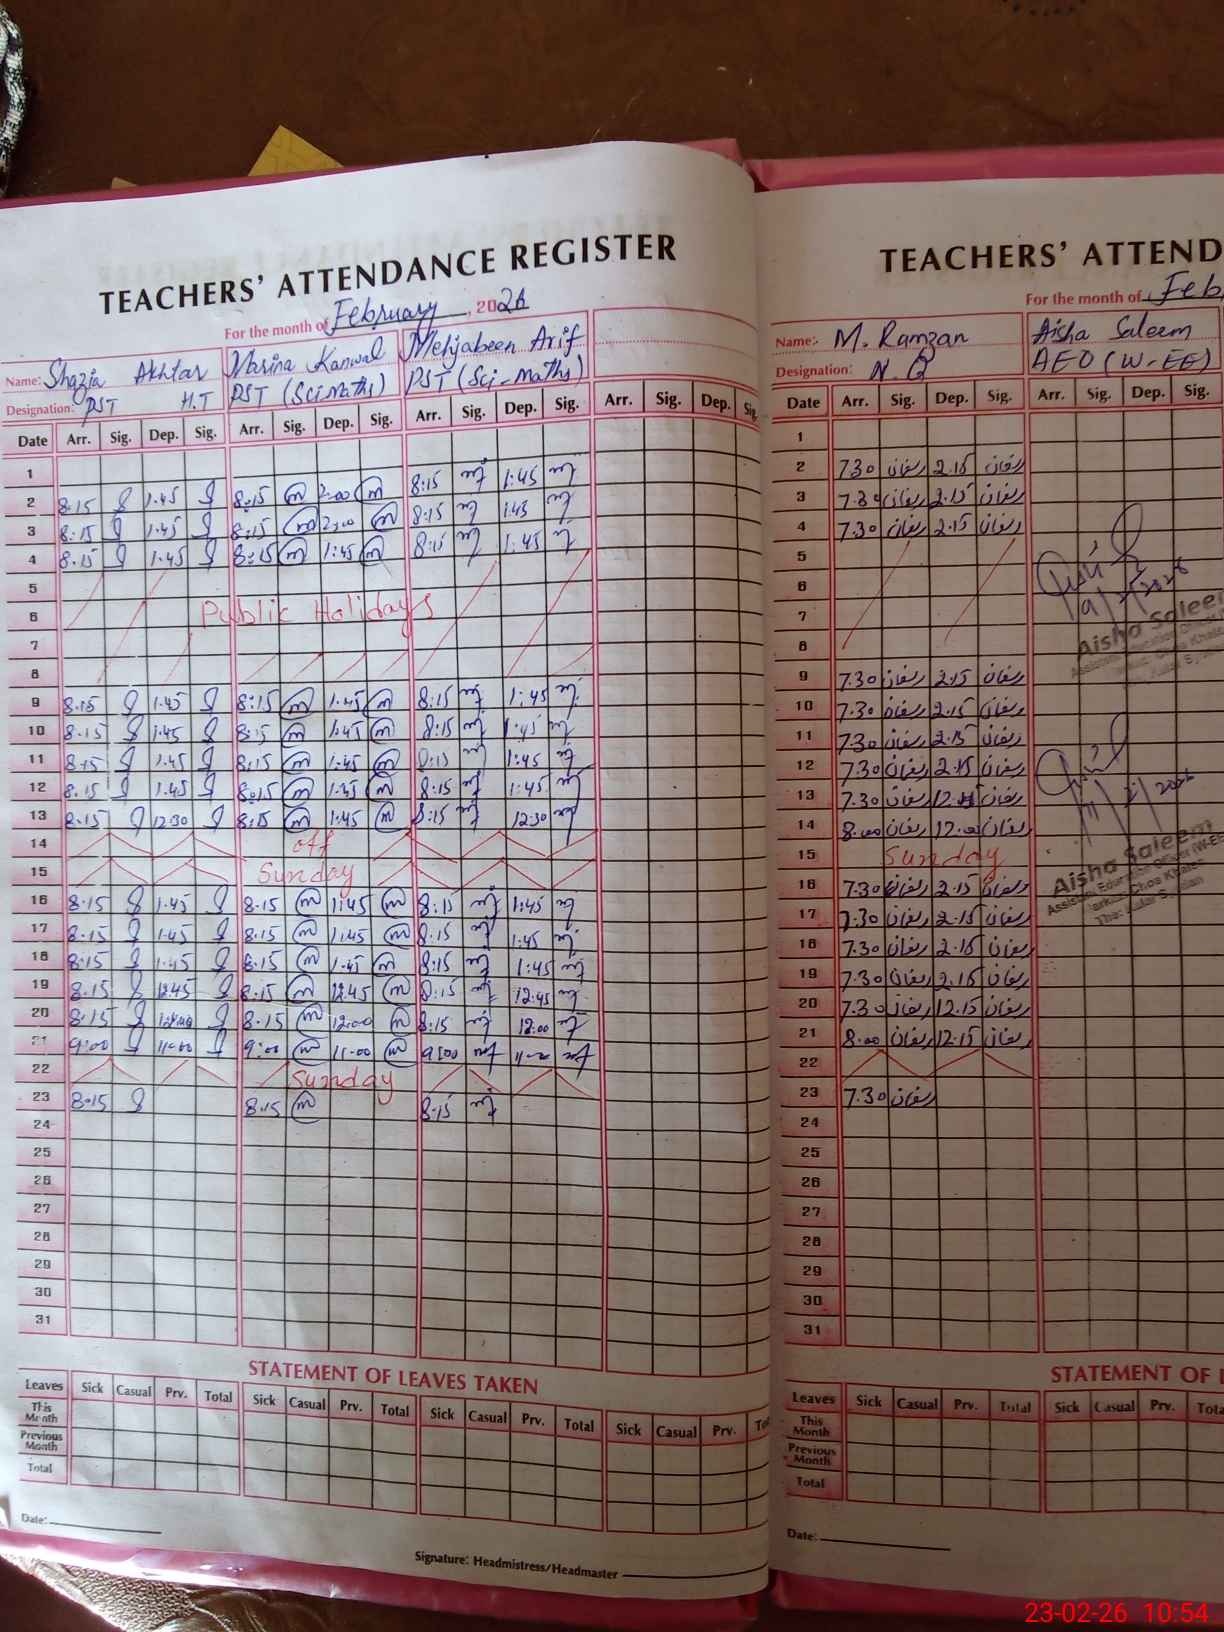 TEACHERS' ATTENDANCE REGISTER
For the month of February, 2026
Name: Shazia Akhtar Marina Kanwal Mehjabeen Arif
Designation: PST H.T PST (Sci Maths) PST (Sci-Maths)
Date Arr. Sig. Dep. Sig. Arr. Sig. Dep. Sig. Arr. Sig. Dep. Sig. Arr. Sig. Dep. Sig.
1
2 8:15 1:45 8:15 2:00 8:15 1:45
3 8:15 1:45 8:15 2:00 8:15 1:45
4 8:15 1:45 8:15 1:45 8:15 1:45
5
6 Public Holidays
7
8
9 8:15 1:45 8:15 1:45 8:15 1:45
10 8:15 1:45 8:15 1:45 8:15 1:45
11 8:15 1:45 8:15 1:45 8:15 1:45
12 8:15 1:45 8:15 1:45 8:15 1:45
13 8:15 12:30 8:15 1:45 8:15 12:30
14 off
15 Sunday
16 8:15 1:45 8:15 1:45 8:15 1:45
17 8:15 1:45 8:15 1:45 8:15 1:45
18 8:15 1:45 8:15 1:45 8:15 1:45
19 8:15 12:45 8:15 12:45 8:15 12:45
20 8:15 12:00 8:15 12:00 8:15 12:00
21 9:00 11:00 9:00 11:00 9:00 11:00
22 Sunday
23 8:15 8:15 8:15
24
25
26
27
28
29
30
31
STATEMENT OF LEAVES TAKEN
Leaves Sick Casual Prv. Total Sick Casual Prv. Total Sick Casual Prv. Total Sick Casual Prv.
This Month
Previous Month
Total
Date:
Signature: Headmistress/Headmaster
TEACHERS' ATTEND
For the month of Feb
Name:- M. Ramzan Aisha Saleem
Designation: N.Q AEO (W-EE)
Date Arr. Sig. Dep. Sig. Arr. Sig. Dep. Sig.
1
2 7.30 رمضان 2.15 رمضان
3 7.30 رمضان 2.15 رمضان
4 7.30 رمضان 2.15 رمضان
5
6
7
8
9 7.30 رمضان 2.15 رمضان
10 7.30 رمضان 2.15 رمضان
11 7.30 رمضان 2.15 رمضان
12 7.30 رمضان 2.15 رمضان
13 7.30 رمضان رمضان
14 8.00 رمضان 12.00 رمضان
15 Sunday
16 7.30 رمضان 2.15 رمضان
17 7.30 رمضان 2.15 رمضان
18 7.30 رمضان 2.15 رمضان
19 7.30 رمضان 2.15 رمضان
20 7.30 رمضان 12.15 رمضان
21 8.00 رمضان 12.15 رمضان
22
23 7.30 رمضان
24
25
26
27
28
29
30
31
Aisha Saleem
Aisha Saleem
Assistant Education Officer (W-EE)
Markaz Choa Khalsa
STATEMENT OF
Leaves Sick Casual Prv. Total Sick Casual Prv.
This Month
Previous Month
Total
Date:
23-02-26 10:54